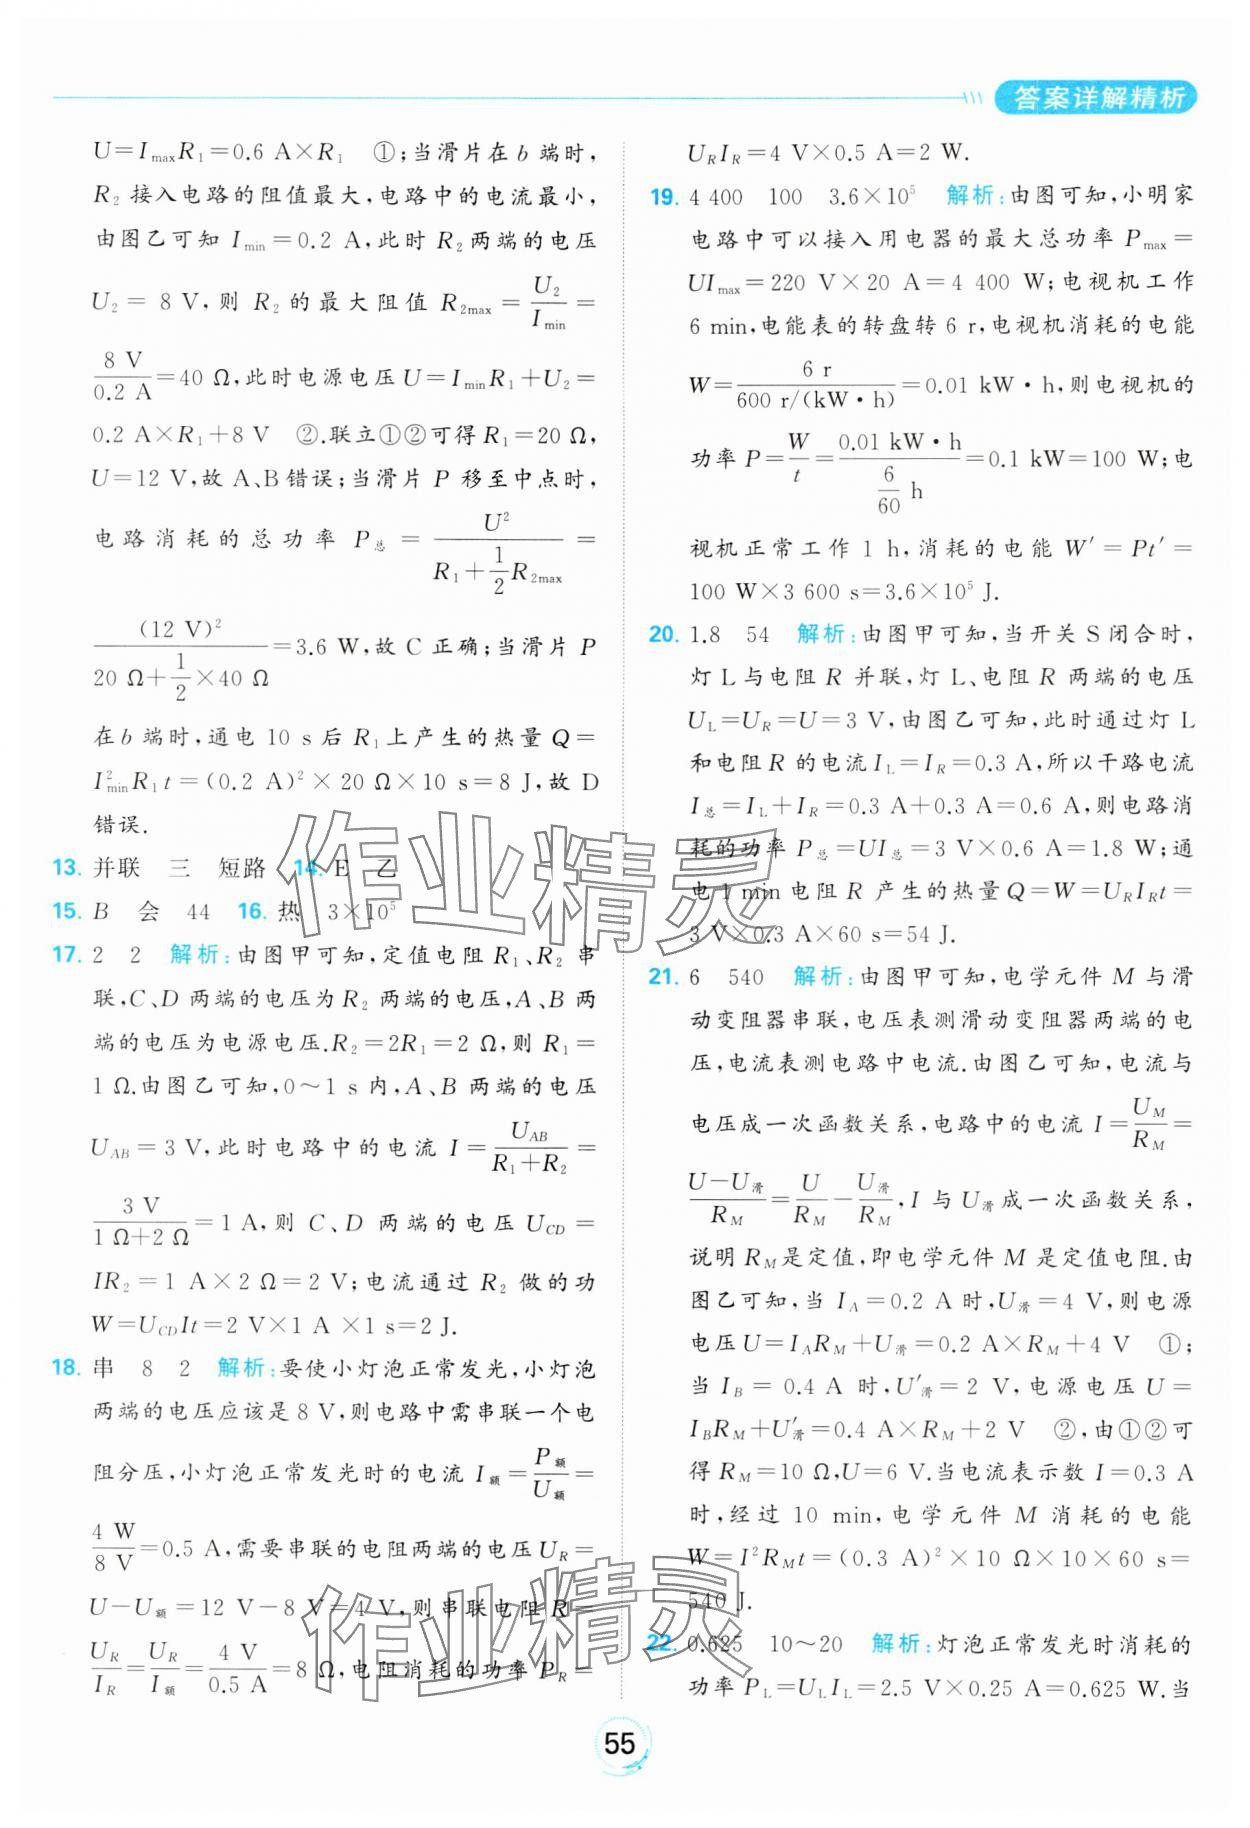 答案详解精析
U=I_max R₁=0.6 A×R₁ ①;当滑片在 b 端时,
R₂接入电路的阻值最大,电路中的电流最小,
由图乙可知 I_min=0.2 A,此时 R₂两端的电压
U₂= 8 V,则 R₂的最大阻值 R_2max = U₂/I_min =
8 V/0.2 A=40 Ω,此时电源电压U=I_min R₁+U₂=
0.2 A×R₁+8 V ②.联立①②可得R₁=20 Ω,
U=12 V,故 A、B错误;当滑片 P 移至中点时,
电路消耗的总功率 P总 = U²/(R₁+½R_2max) =
(12 V)²/(20 Ω+½×40 Ω)=3.6 W,故 C 正确;当滑片 P
在b 端时,通电 10 s后 R₁上产生的热量 Q=
I²_min R₁t=(0.2 A)²×20 Ω×10 s=8 J,故 D
错误.
13. 并联 三 短路 14. E 乙
15. B 会 44 16. 热 3×10⁵
17. 2 2 解析:由图甲可知,定值电阻 R₁、R₂ 串
联,C、D 两端的电压为 R₂ 两端的电压,A、B 两
端的电压为电源电压.R₂=2R₁=2 Ω,则 R₁=
1 Ω.由图乙可知,0～1 s内,A、B 两端的电压
U_AB=3 V,此时电路中的电流 I=U_AB/(R₁+R₂)=
3 V/(1 Ω+2 Ω)=1 A,则 C、D 两端的电压U_CD=
IR₂=1 A×2 Ω=2 V;电流通过 R₂ 做的功
W=U_CD It=2 V×1 A ×1 s=2 J.
18. 串 8 2 解析:要使小灯泡正常发光,小灯泡
两端的电压应该是8 V,则电路中需串联一个电
阻分压,小灯泡正常发光时的电流 I额=P额/U额=
4 W/8 V=0.5 A,需要串联的电阻两端的电压U_R=
U－U额=12 V－8 V=4 V,则串联电阻 R=
U_R/I_R=U_R/I额=4 V/0.5 A=8 Ω,电阻消耗的功率 P_R=
U_R I_R=4 V×0.5 A=2 W.
19. 4 400 100 3.6×10⁵ 解析:由图可知,小明家
电路中可以接入用电器的最大总功率 P_max=
UI_max=220 V×20 A=4 400 W;电视机工作
6 min,电能表的转盘转 6 r,电视机消耗的电能
W=6 r/(600 r/(kW·h))=0.01 kW·h,则电视机的
功率 P=W/t=0.01 kW·h/(6/60 h)=0.1 kW=100 W;电
视机正常工作 1 h,消耗的电能 W′=Pt′=
100 W×3 600 s=3.6×10⁵ J.
20. 1.8 54 解析:由图甲可知,当开关 S 闭合时,
灯 L与电阻 R 并联,灯 L、电阻 R 两端的电压
U_L=U_R=U=3 V,由图乙可知,此时通过灯 L
和电阻 R 的电流 I_L=I_R=0.3 A,所以干路电流
I总=I_L+I_R=0.3 A+0.3 A=0.6 A,则电路消
耗的功率 P总=UI总=3 V×0.6 A=1.8 W;通
电 1 min 电阻 R 产生的热量 Q=W=U_R I_R t=
3 V×0.3 A×60 s=54 J.
21. 6 540 解析:由图甲可知,电学元件 M 与滑
动变阻器串联,电压表测滑动变阻器两端的电
压,电流表测电路中电流.由图乙可知,电流与
电压成一次函数关系,电路中的电流 I=U_M/R_M=
(U－U滑)/R_M=U/R_M－U滑/R_M,I 与 U滑成一次函数关系,
说明 R_M是定值,即电学元件 M 是定值电阻.由
图乙可知,当 I_A=0.2 A时,U滑=4 V,则电源
电压U=I_A R_M+U滑=0.2 A×R_M+4 V ①;
当 I_B=0.4 A 时,U′滑=2 V,电源电压 U=
I_B R_M+U′滑=0.4 A×R_M+2 V ②,由①②可
得 R_M=10 Ω,U=6 V.当电流表示数 I=0.3 A
时,经过 10 min,电学元件 M 消耗的电能
W=I²R_M t=(0.3 A)²×10 Ω×10×60 s=
540 J.
22. 0.625 10～20 解析:灯泡正常发光时消耗的
功率 P_L=U_L I_L=2.5 V×0.25 A=0.625 W.当
作业精灵
作业精灵
55